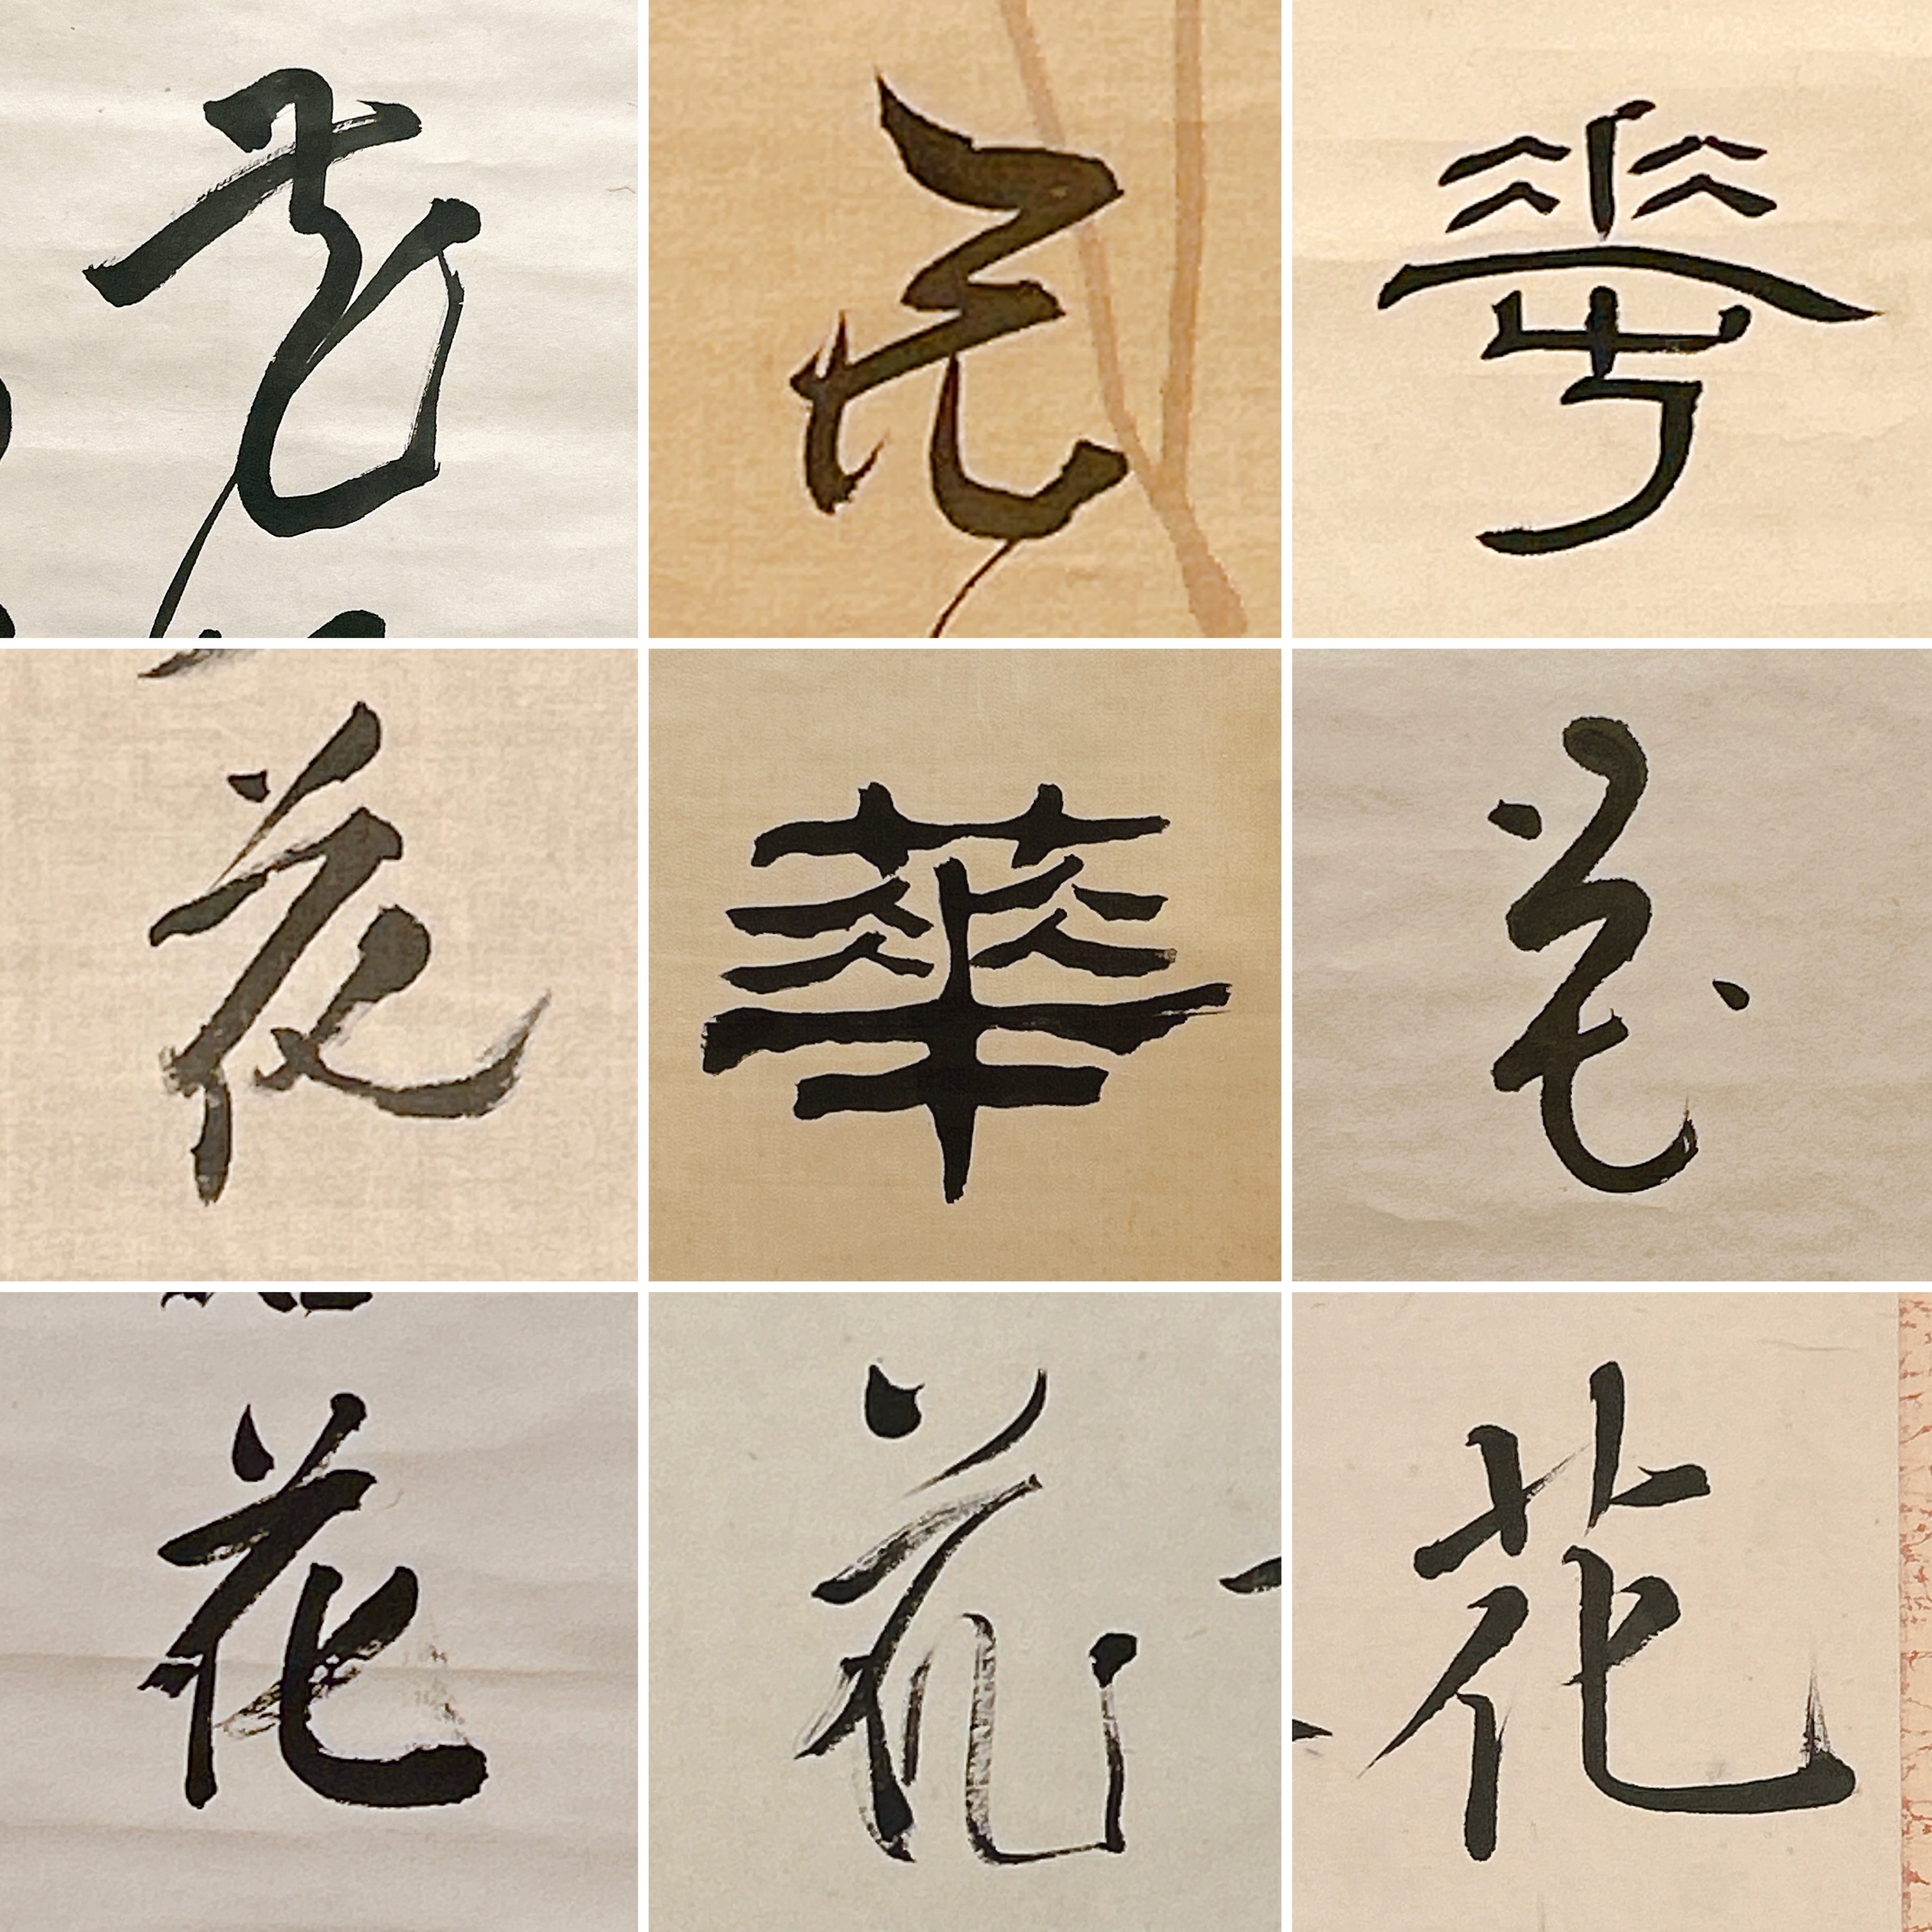 花
花
華
花
華
花
花
花
花